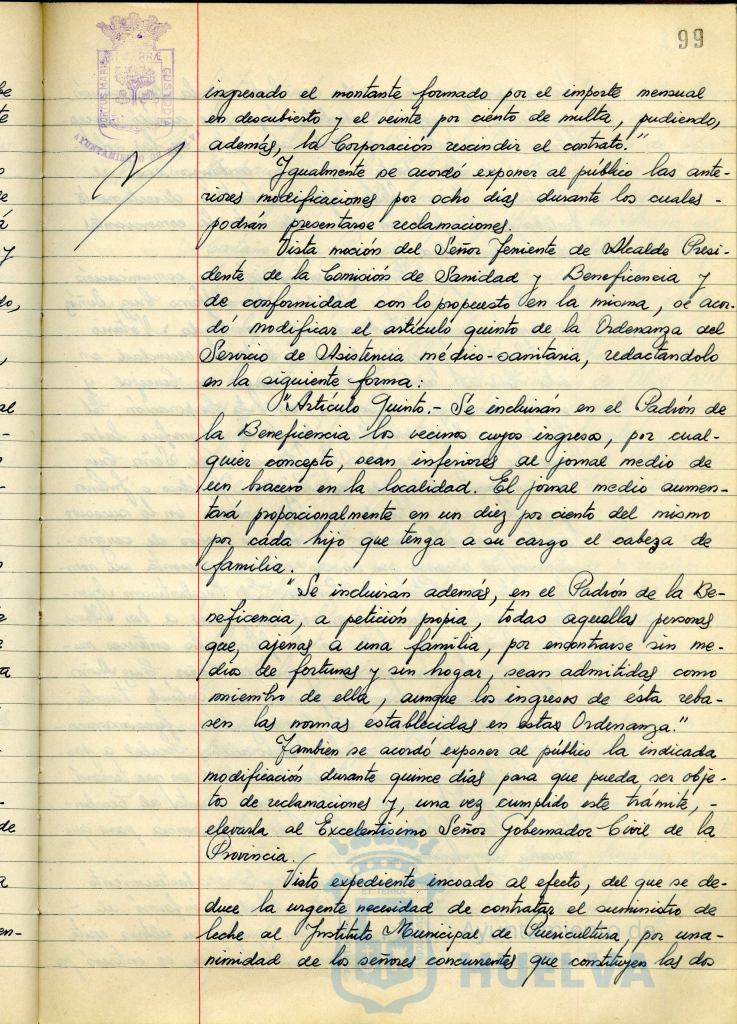 99
PORTUS MARIS ET TERRÆ CUSTODIA
AYUNTAMIENTO DE HUELVA
ingresado el montante formado por el importe mensual
en descubierto y el veinte por ciento de multa, pudiendo,
además, la Corporación rescindir el contrato."
Igualmente se acordó exponer al público las ante-
riores modificaciones por ocho días durante los cuales -
podrán presentarse reclamaciones.
Vista moción del Señor Teniente de Alcalde Presi-
dente de la Comisión de Sanidad y Beneficencia y
de conformidad con lo propuesto en la misma, se acor-
dó modificar el artículo quinto de la Ordenanza del
Servicio de Asistencia médico-sanitaria, redactándolo
en la siguiente forma:
"Artículo Quinto.- Se incluirán en el Padrón de
la Beneficencia los vecinos cuyos ingresos, por cual-
quier concepto, sean inferiores al jornal medio de
un bracero en la localidad. El jornal medio aumen-
tará proporcionalmente en un diez por ciento del mismo
por cada hijo que tenga a su cargo el cabeza de
familia.
"Se incluirán además, en el Padrón de la Be-
neficencia, a petición propia, todas aquellas personas
que, ajenas a una familia, por encontrarse sin me-
dios de fortunas y sin hogar, sean admitidas como
miembro de ella, aunque los ingresos de ésta reba-
sen las normas establecidas en estas Ordenanza."
Tambien se acordó exponer al público la indicada
modificación durante quince días para que pueda ser obje-
tos de reclamaciones y, una vez cumplido este trámite, -
elevarla al Excelentísimo Señor Gobernador Civil de la
Provincia.
Visto expediente incoado al efecto, del que se de-
duce la urgente necesidad de contratar el suministro de
leche al Instituto Municipal de Puericultura, por una-
nimidad de los señores concurrentes que constituyen las dos
Ayuntamiento de
HUELVA